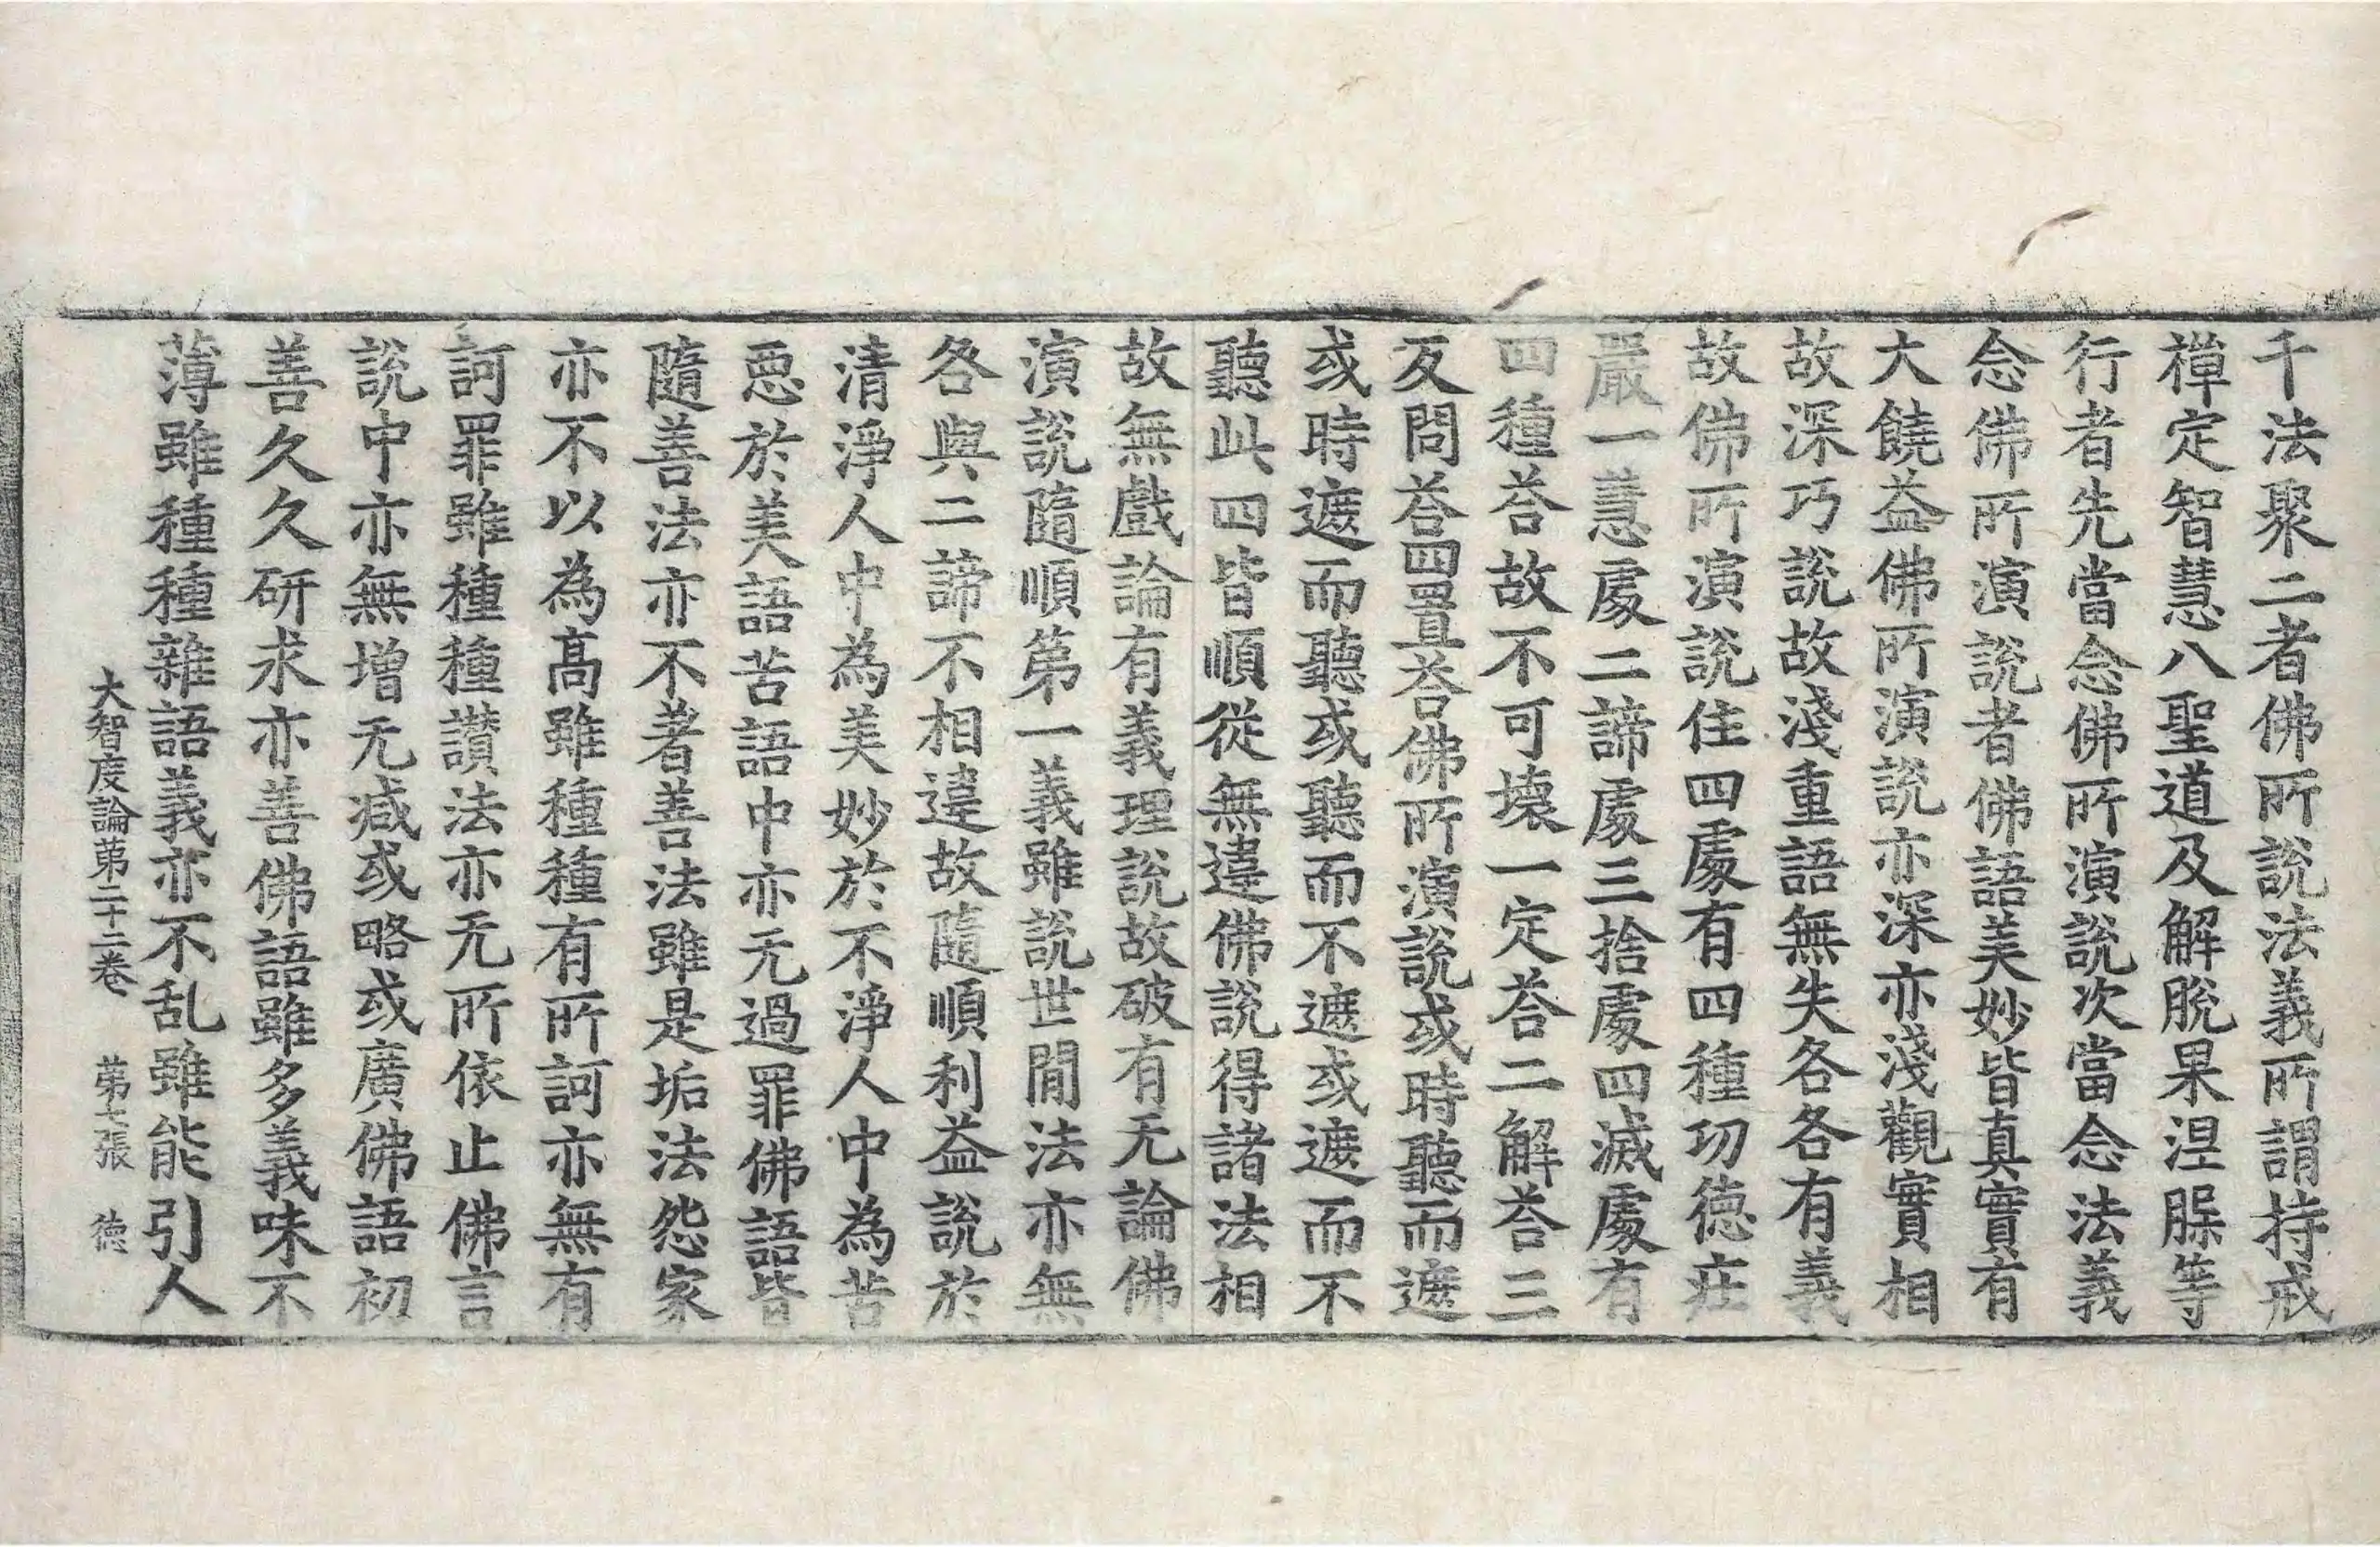 千法聚二者佛所說法義所謂持戒
禪定智慧八聖道及解脫果涅槃等
行者先當念佛所演說次當念法義
念佛所演說者佛語美妙皆真實有
大饒益佛所演說亦深亦淺觀實相
故深巧說故淺重語無失各各有義
故佛所演說住四處有四種功德莊
嚴一慧處二諦處三捨處四滅處有
四種荅故不可壞一定荅二解荅三
反問荅四置荅佛所演說或時聽而遮
或時遮而聽或聽而不遮或遮而不
聽此四皆順從無違佛說得諸法相
故無戲論有義理說故破有无論佛
演說隨順第一義雖說世閒法亦無
咎與二諦不相違故隨順利益說於
清淨人中為美妙於不淨人中為苦
惡於美語苦語中亦无過罪佛語皆
隨善法亦不著善法雖是垢法怨家
亦不以為高雖種種有所訶亦無有
訶罪雖種種讚法亦无所依止佛言
說中亦無增无減或略或廣佛語初
善久久研求亦善佛語雖多義味不
薄雖種種雜語義亦不乱雖能引人
大智度論第二十二卷 第七張 德